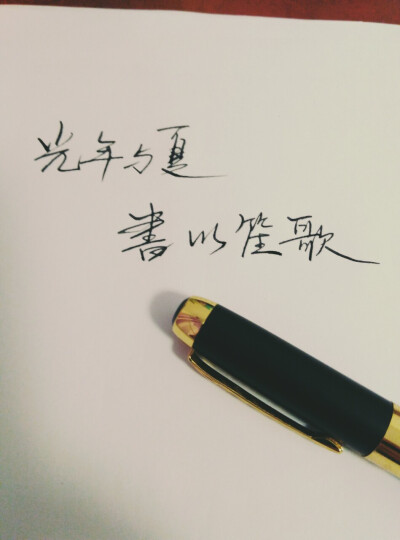 光年与夏
書以笙歌